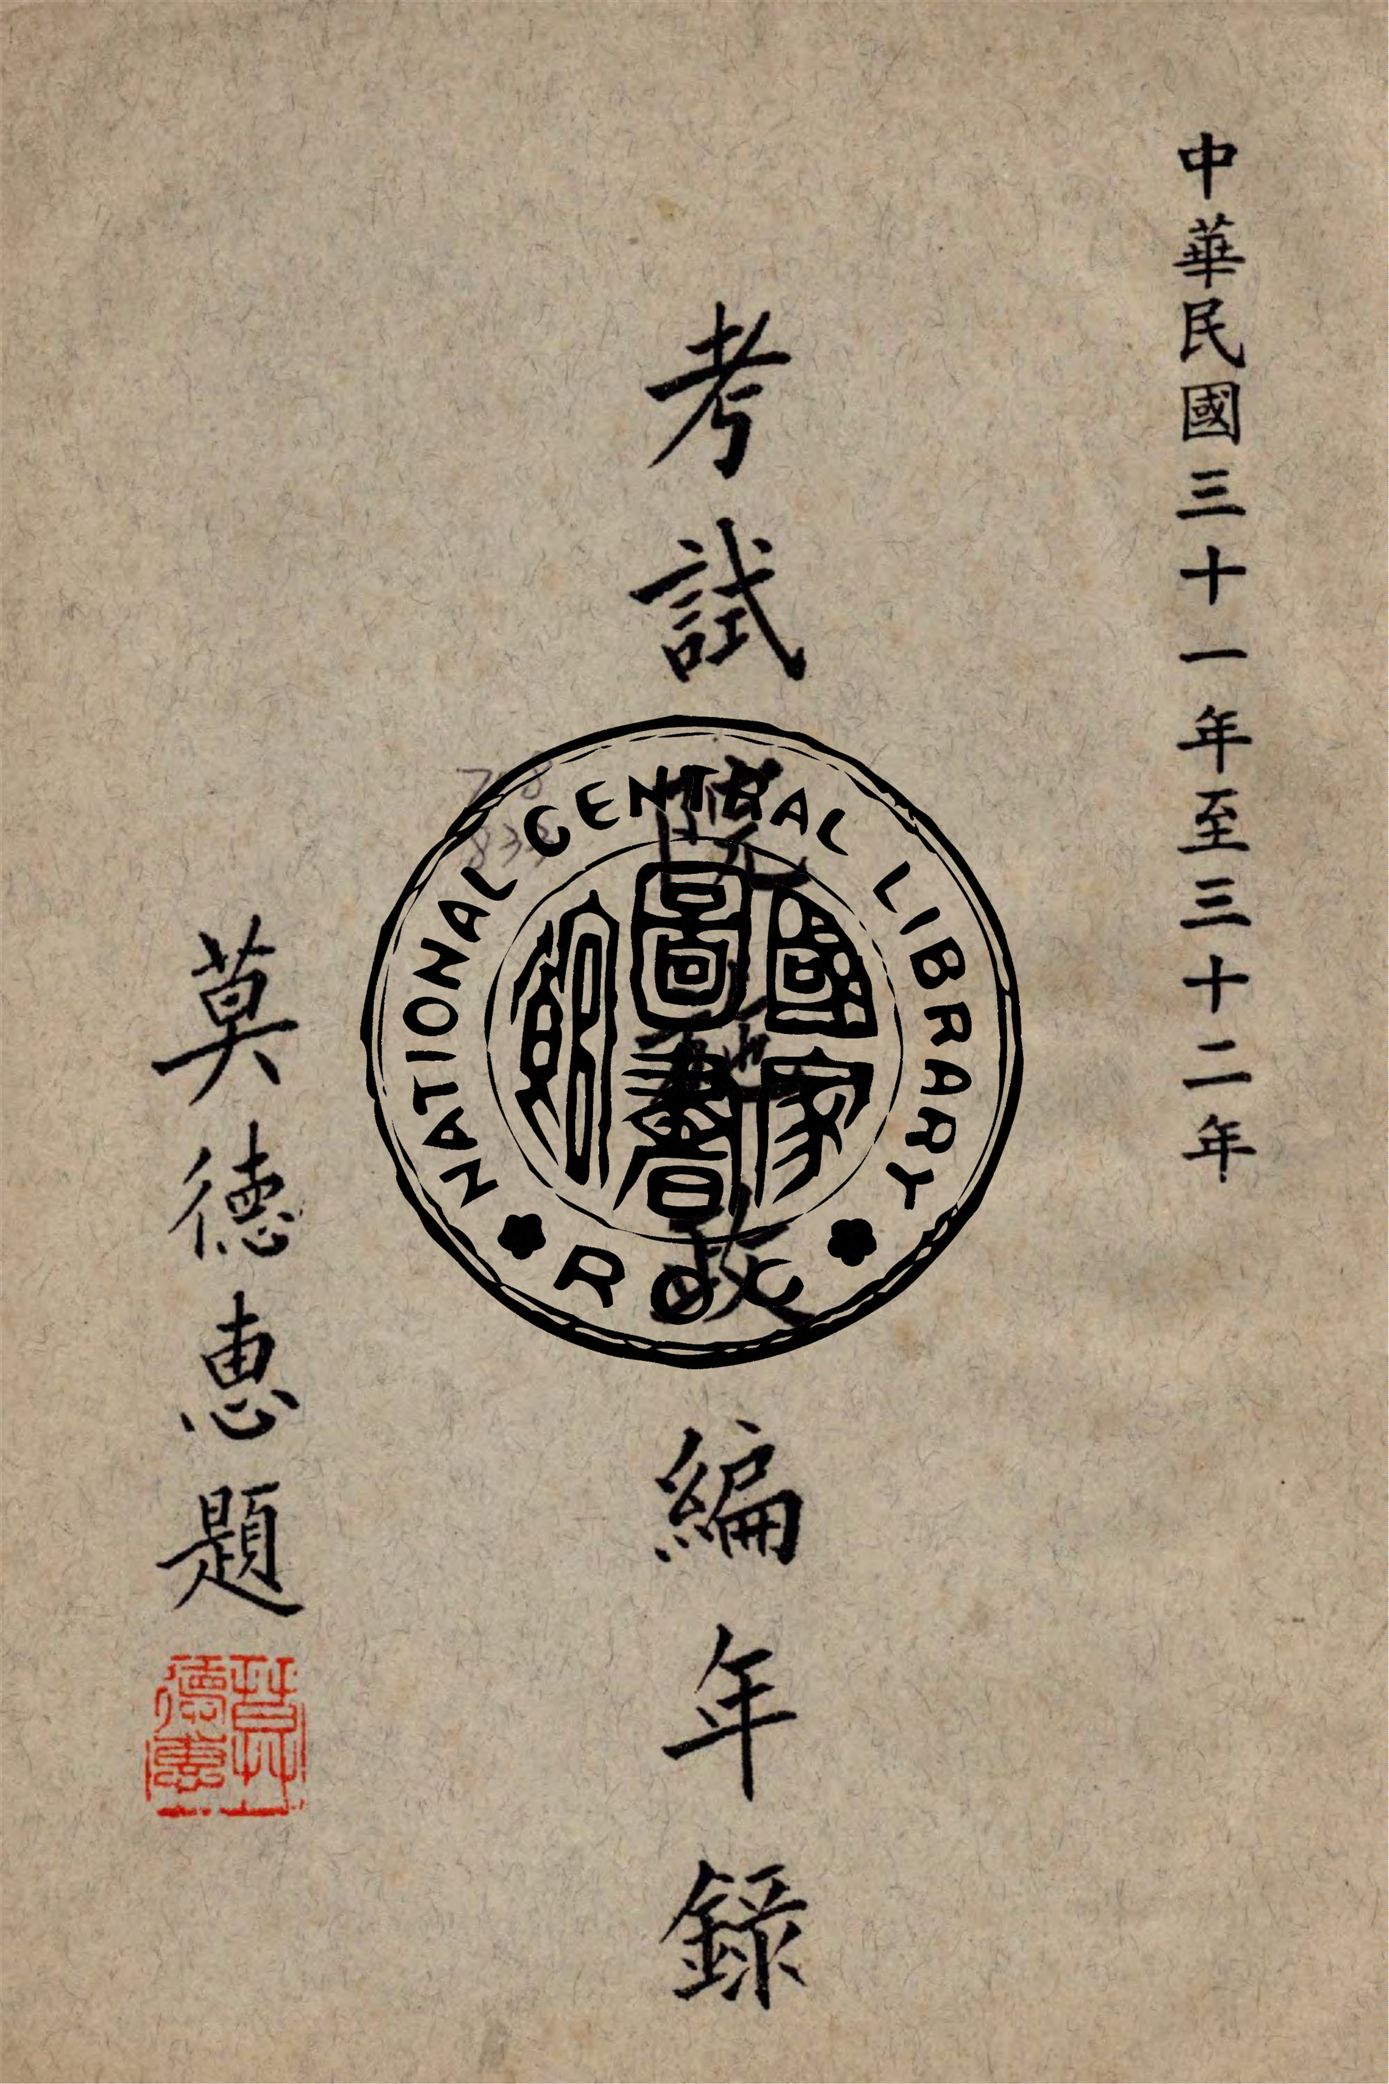 中華民國三十一年至三十二年
考試院施政編年錄
莫德惠題
莫德惠
NATIONAL CENTRAL LIBRARY
國家圖書館
ROC